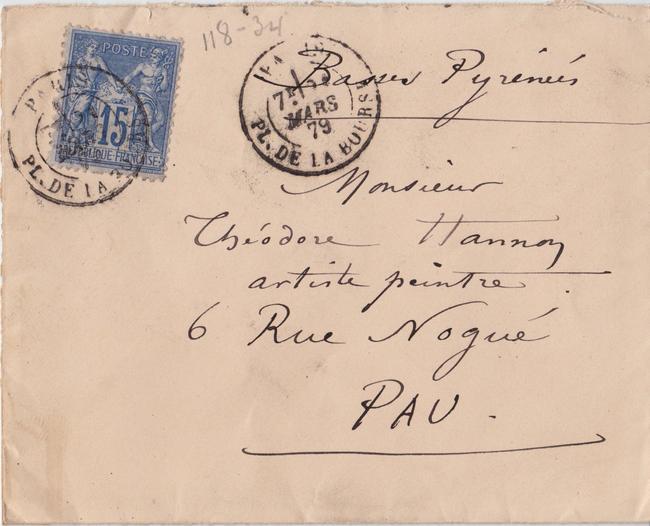 118-34
POSTE
15
REPUBLIQUE FRANÇAISE
PARIS
PL. DE LA
PARIS
7E
MARS
79
PL. DE LA BOURSE
Basses Pyrénées
Monsieur
Théodore Hannon
artiste peintre.
6 Rue Nogué
PAU.